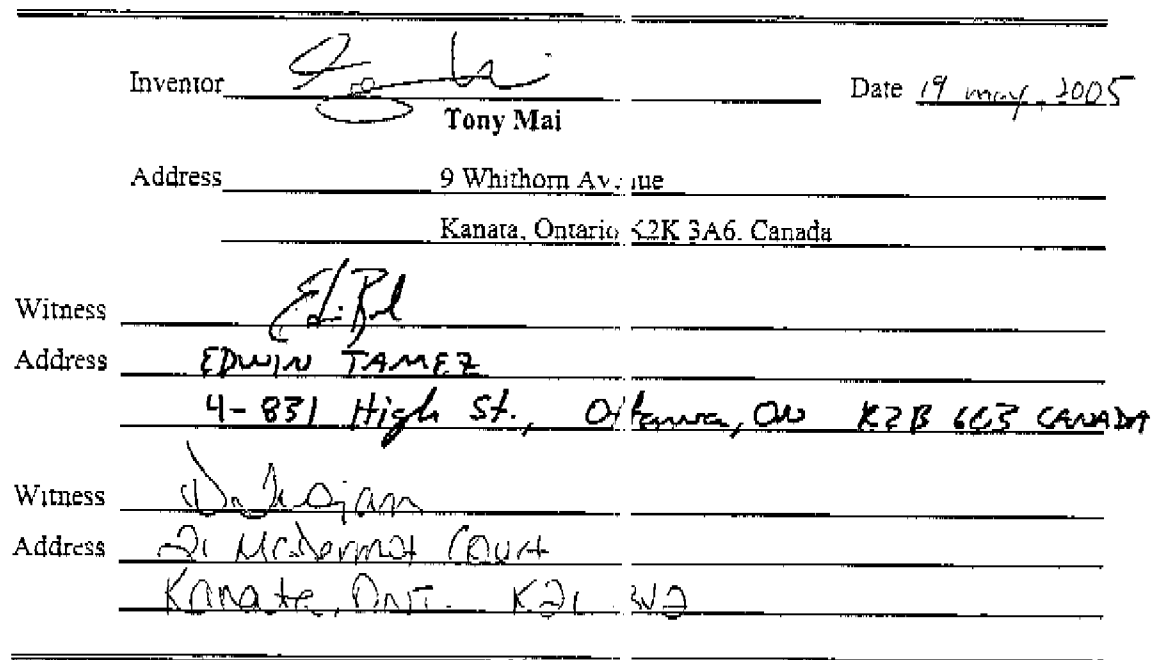 Inventor Date 19 may, 2005
Tony Mai
Address 9 Whithorn Avenue
Kanata, Ontario K2K 3A6. Canada
Witness
Address EDWIN TAMEZ
4-831 High St., Ottawa, ON K2B 6C3 CANADA
Witness
Address 21 McDermot Court
Kanata, Ont.